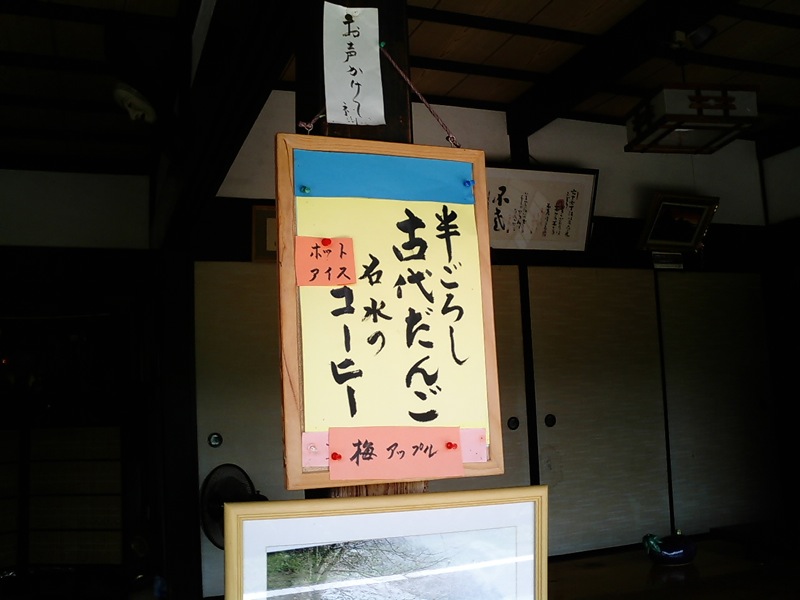 お声かけし
半ごろし
古代だんご
名水の
コーヒー
ホット
アイス
梅 アップル